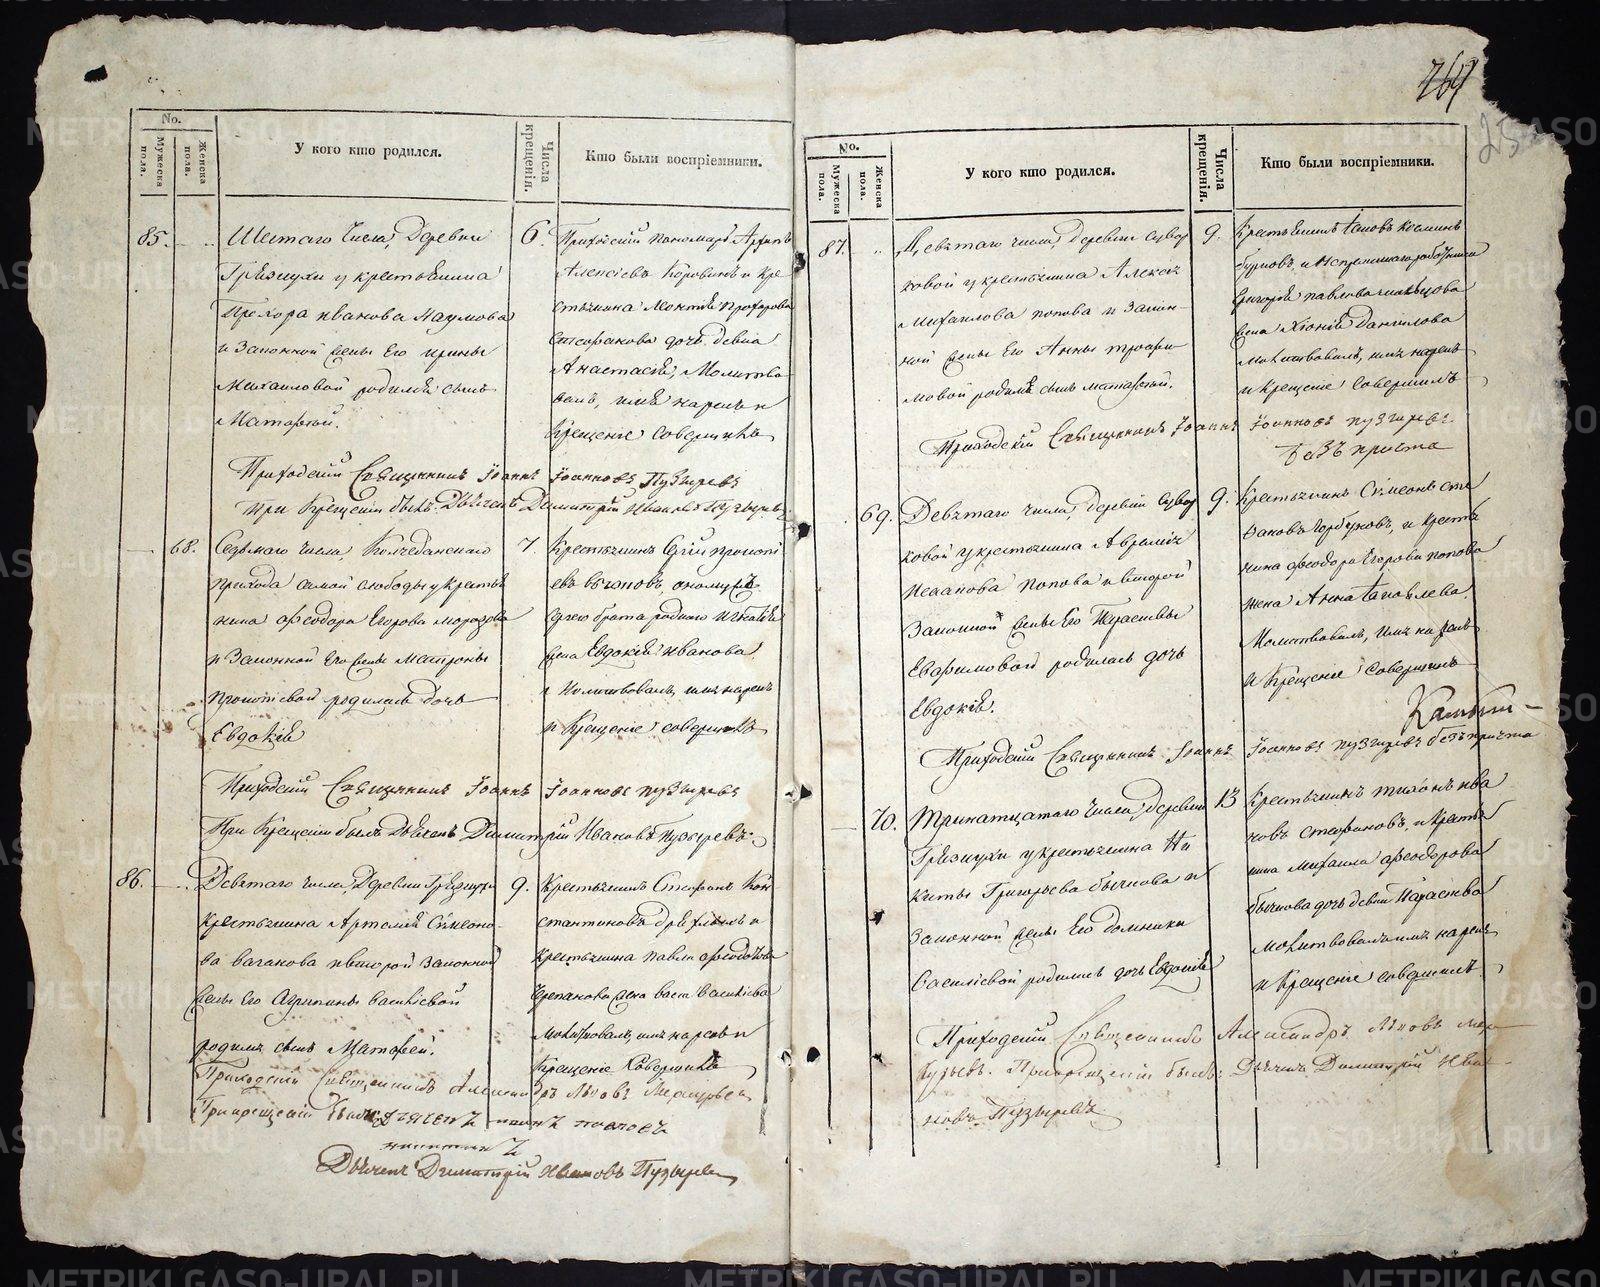 769
No.
Мужеска пола.
Женска пола.
У кого кто родился.
Числа крещенія.
Кто были воспріемники.
85.
Шестаго числа, Деревни
Грязнухи у крестьянина
Прохора Иванова Наумова
и Законной жены Его Ирины
Михаиловой родился сынъ
Матѳей.
6.
Приходскій пономарь Архипъ
Алексіевъ Коровинъ и Кре
стьянина Прохорова
Стефанова дочь девка
Анастасія, Молитво
валъ, имя нарекъ и
Крещеніе совершилъ
Приходскій Священникъ Іоаннъ Іоанновъ Пузыревъ
При Крещеніи былъ Дьячекъ Димитрій Ивановъ Пузыревъ
68.
Седьмаго числа, Колчеданскаго
прихода самой слободы у крестья
нина Феодора Егорова Морозова
и Законной Его жены Матроны
Прокопіевой родилась дочь
Евдокія
7.
Крестьянинъ Сергій Прокопі
евъ
своего брата роднаго Игнатія
жена Евдокія Иванова
Молитвовалъ, имя нарекъ
и Крещеніе совершилъ
Приходскій Священникъ Іоаннъ Іоанновъ Пузыревъ
При Крещеніи былъ Дьячекъ Димитрій Ивановъ Пузыревъ
86.
Девятаго числа, Деревни Грязнухи
крестьянина Симеоно
ва Ваганова и второй Законной
жены Его Агрипины Василіевой
родился сынъ Матѳей.
9.
Крестьянинъ Стефанъ Кон
стантиновъ и
Крестьянина Павла Феодотова
Черепанова жена Васса Василіева
Молитвовалъ, имя нарекъ и
Крещеніе Совершилъ
Приходскій Священникъ Александръ Львовъ Меркурьевъ
При крещеніи былъ
Дьячекъ Димитрій Ивановъ Пузыревъ
No.
Мужеска пола.
Женска пола.
У кого кто родился.
Числа крещенія.
Кто были воспріемники.
87.
Девятаго числа, деревни Сувор
ковой у крестьянина Алексія
Михаилова Попова и Закон-
ной жены Его Анны Трофи
мовой родился сынъ Матѳей.
9.
Крестьянинъ Іаковъ Косминъ
Бурковъ, и
Григорія Павлова
жена Хіонія Даніилова
Молитвовалъ, имя нарекъ
и Крещеніе совершилъ
Приходскій Священникъ Іоаннъ Іоанновъ Пузыревъ
безъ причта
69.
Девятаго числа, деревни Сувор
ковой у крестьянина Авраамія
Исаакова Попова и второй
Законной жены Его Параскевы
Евфимовой родилась дочь
Евдокія.
9.
Крестьянинъ Симеонъ Сте
фановъ Горбуновъ, и Крестья
нина Феодора Егорова Попова
жена Анна Іаковлева
Молитвовалъ, имя нарекъ
и Крещеніе Совершилъ
Приходскій Священникъ Іоаннъ Іоанновъ Пузыревъ безъ причта
70.
Тринатцатаго числа, деревни
Грязнухи у крестьянина Ни
киты Григорьева Бычкова и
Законной жены Его Домники
Василіевой родилась дочь Евдокія
13
Крестьянинъ Тихонъ Ива
новъ Стефановъ, и Крестья
нина Михаила Феодорова
Бычкова дочь девка Параскева
Молитвовалъ имя нарекъ
и Крещеніе совершилъ
Приходскій Священникъ Александръ Львовъ Мер-
курьевъ. При крещеніи былъ: Дьячекъ Димитрій Ива-
новъ Пузыревъ